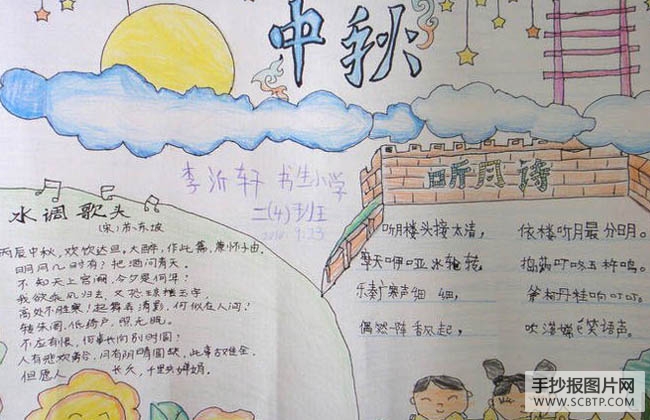 中秋
李沂轩 书生小学
二(4)班
2010 9.23
水调歌头
(宋)苏东坡
丙辰中秋,欢饮达旦,大醉,作此篇,兼怀子由。
明月几时有?把酒问青天。
不知天上宫阙,今夕是何年!
我欲乘风归去,又恐琼楼玉宇,
高处不胜寒!起舞弄清影,何似在人间!
转朱阁,低绮户,照无眠。
不应有恨,何事长向别时圆?
人有悲欢离合,月有阴晴圆缺,此事古难全。
但愿人长久,千里共婵娟。
听月诗
听月楼头接太清, 依楼听月最分明。
摩天咿哑冰轮转, 捣药叮咚玉杵鸣。
乐奏广寒声细细, 斧柯丹桂响叮叮。
偶然一阵香风起, 吹落嫦娥笑语声。
手抄报图片网
WWW.SCBTP.COM